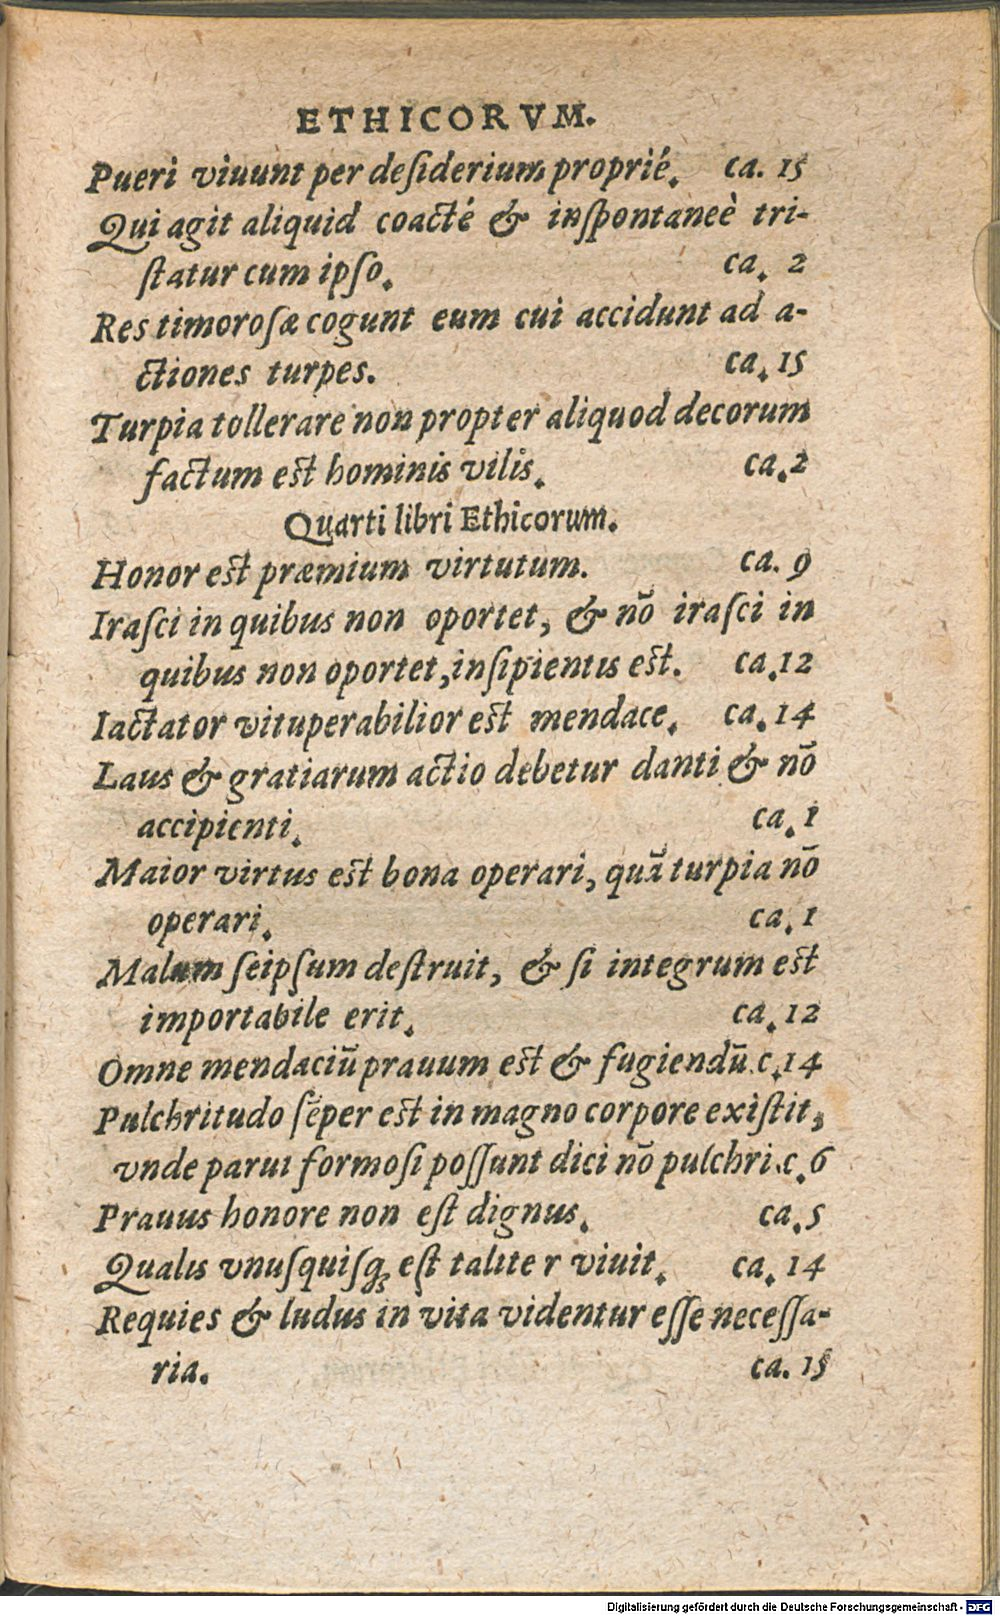 ETHICORVM.
Pueri viuunt per deſiderium proprié. ca. 15
Qui agit aliquid coacté & inſpontaneè tri-
ſtatur cum ipſo. ca. 2
Res timoroſæ cogunt eum cui accidunt ad a-
ctiones turpes. ca. 15
Turpia tollerare non propter aliquod decorum
factum eſt hominis vilis. ca. 2
Quarti libri Ethicorum.
Honor eſt præmium virtutum. ca. 9
Iraſci in quibus non oportet, & nō iraſci in
quibus non oportet, inſipientis eſt. ca. 12
Iactator vituperabilior eſt mendace. ca. 14
Laus & gratiarum actio debetur danti & nō
accipienti. ca. 1
Maior virtus eſt bona operari, quā turpia nō
operari. ca. 1
Malum ſeipſum deſtruit, & ſi integrum eſt
importabile erit. ca. 12
Omne mendaciū prauum eſt & fugiendū. c. 14
Pulchritudo ſēper eſt in magno corpore exiſtit,
vnde parui formoſi poſſunt dici nō pulchri. c. 6
Prauus honore non eſt dignus. ca. 5
Qualis vnuſquiſqꝫ eſt talite r viuit. ca. 14
Requies & ludus in vita videntur eſſe neceſſa-
ria. ca. 15
Digitalisierung gefördert durch die Deutsche Forschungsgemeinschaft - DFG